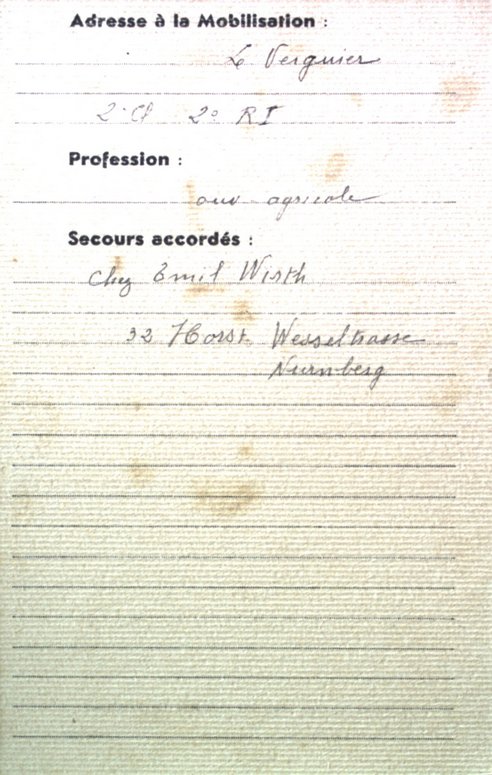 Adresse à la Mobilisation :
Le Verguier
2e Cl 2e RI
Profession :
ouv agricole
Secours accordés :
chez Emil Wirth
32 Horst Wesseltrasse
Nurnberg